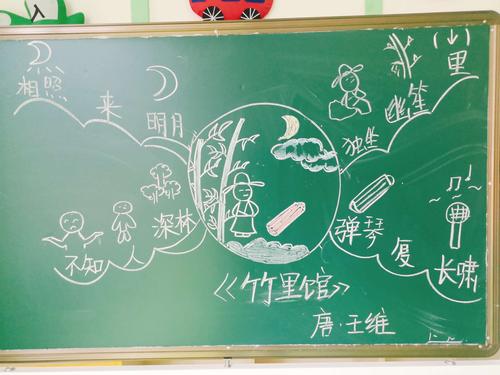 独坐 幽篁 里
弹琴 复 长啸
深林 人 不知
明月 来 相照
《竹里馆》
唐·王维